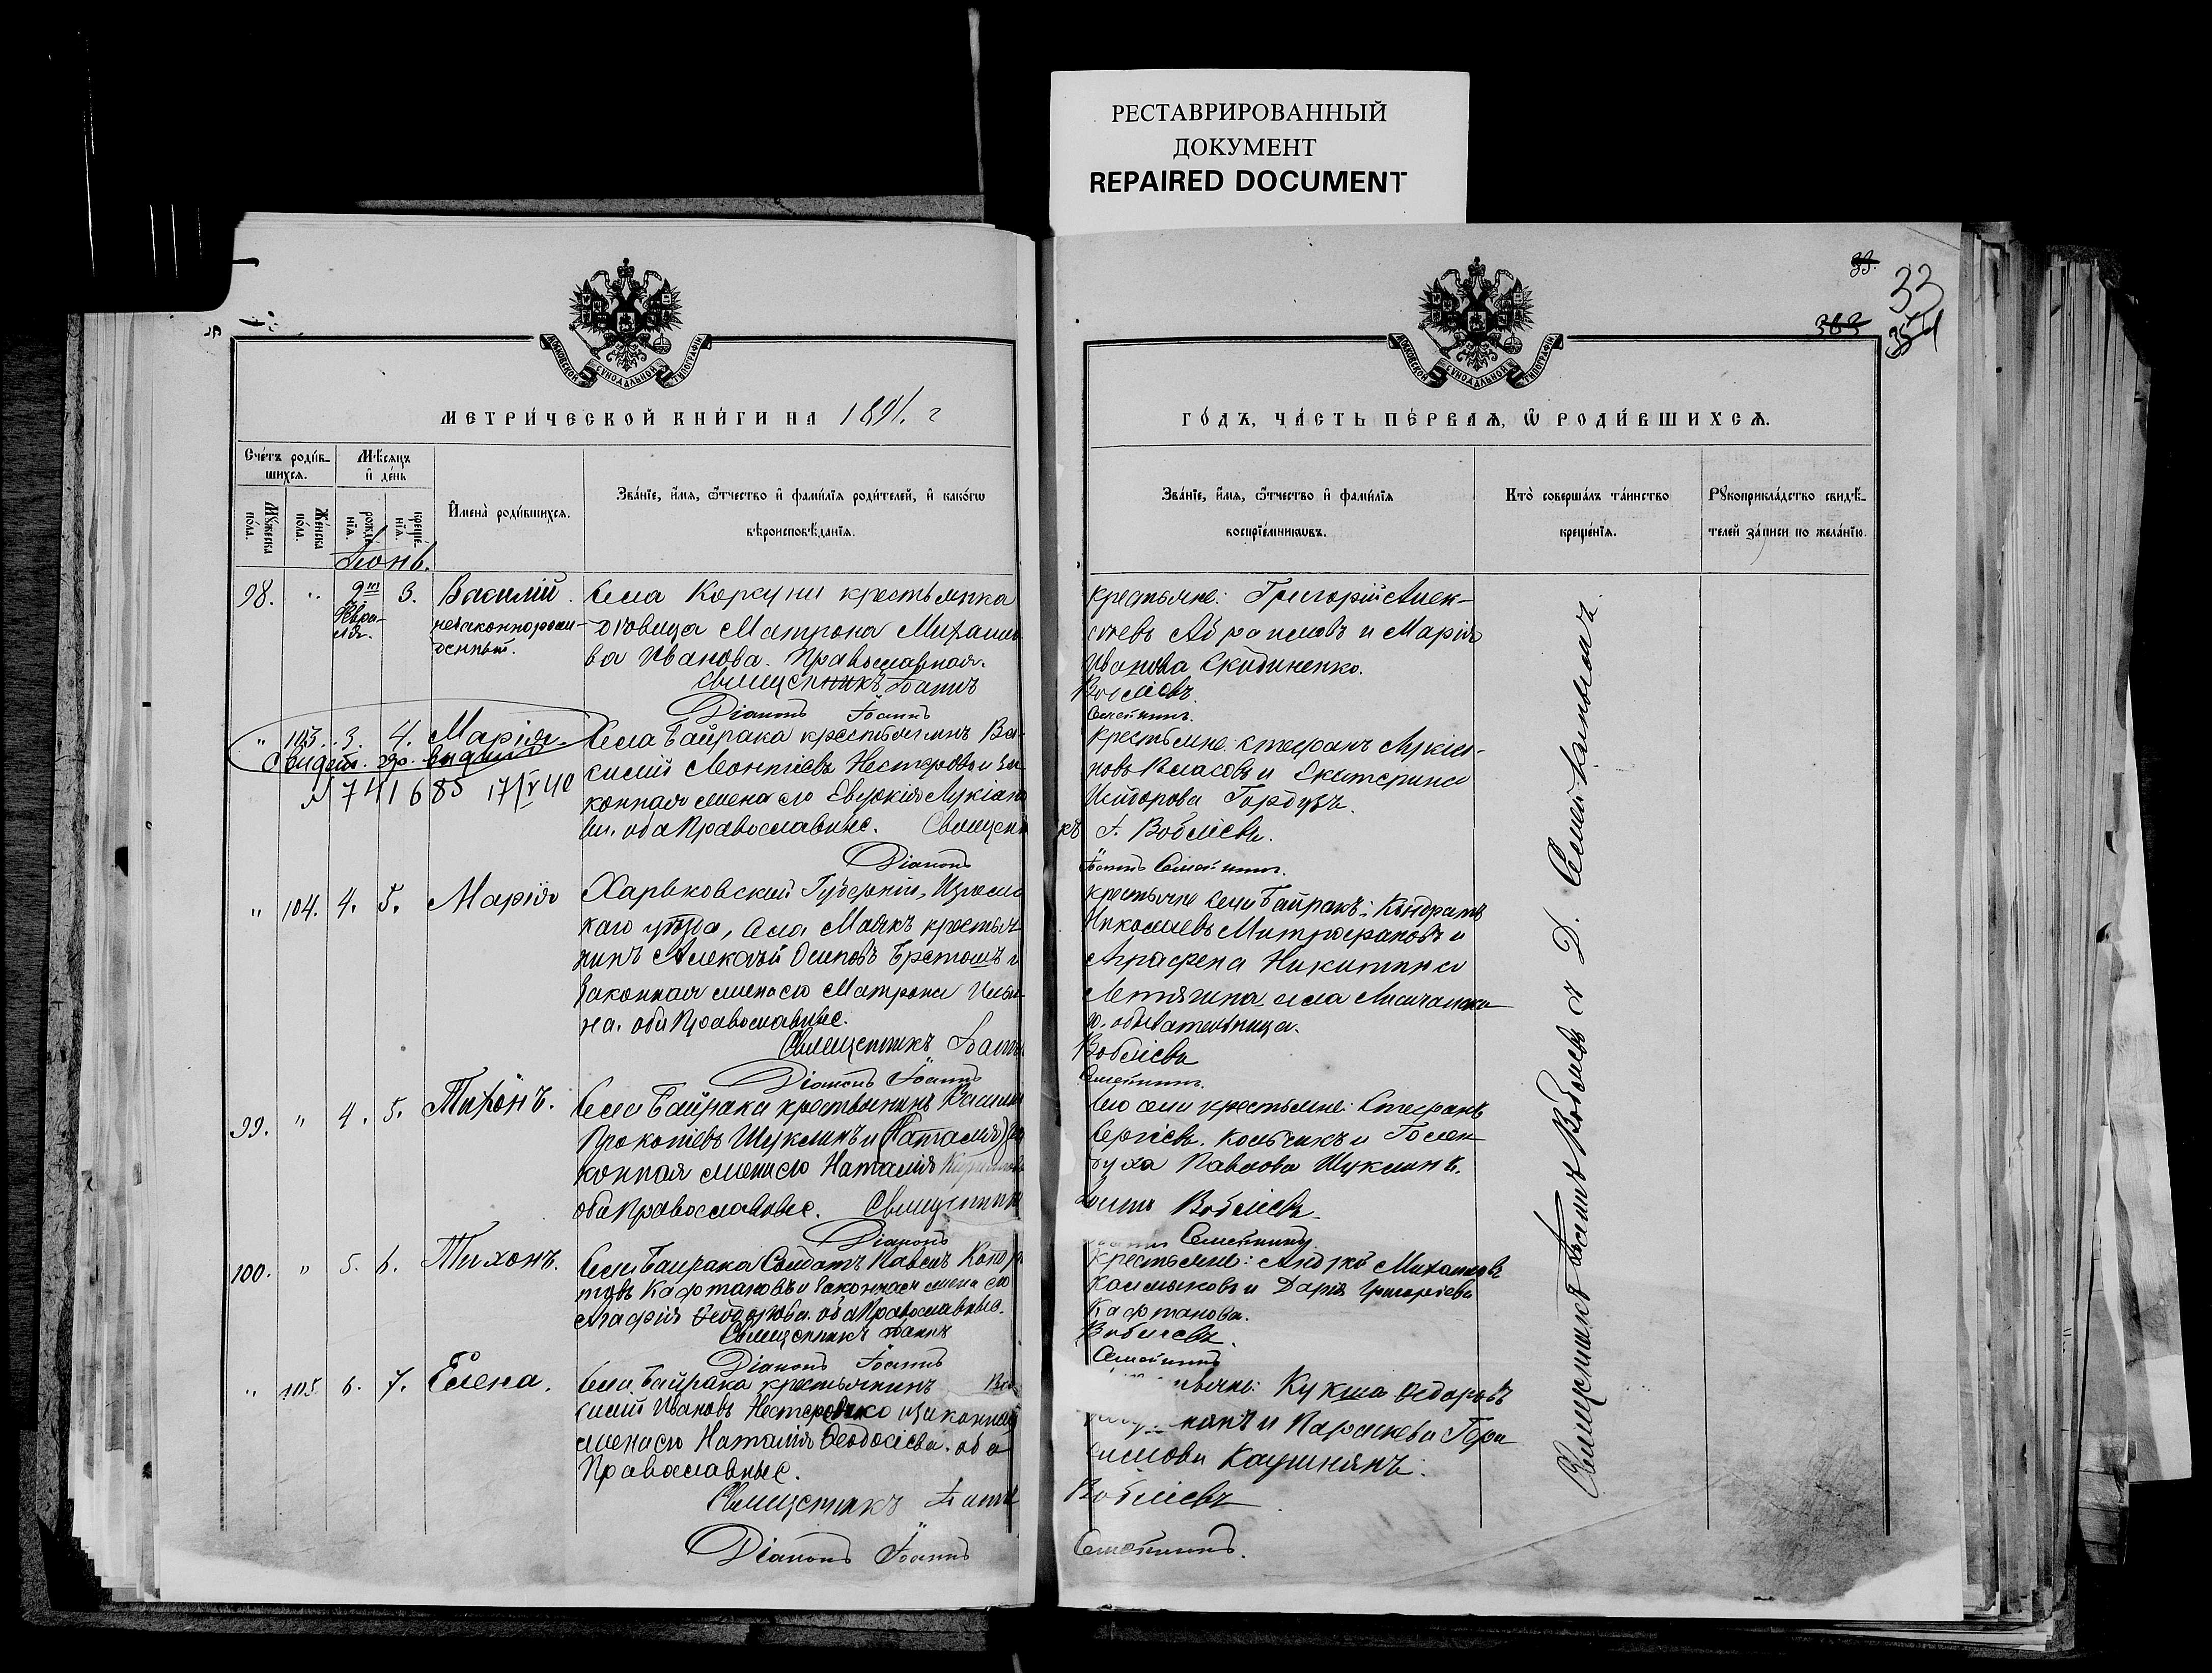 РЕСТАВРИРОВАННЫЙ
ДОКУМЕНТ
REPAIRED DOCUMENT
33.
33
363
354
МОСКОВСКОЙ СѴНОДАЛЬНОЙ ТИПОГРАФІИ
МОСКОВСКОЙ СѴНОДАЛЬНОЙ ТИПОГРАФІИ
МЕТРИ́ЧЕСКОЙ КНИ́ГИ НА 1891. г
ГО́ДЪ, ЧА́СТЬ ПЕ́РВАѦ, Ѡ҆ РОДИ́ВШИХСѦ.
Сче́тъ роди́в-
шихсѧ.
Мꙋ́жеска по́ла.
Же́нска по́ла.
Мѣ́сѧцъ
и҆ де́нь
рожде́-
нїѧ.
креще́-
нїѧ.
И҆мена̀ роди́вшихсѧ.
Зва́нїе, и҆́мѧ, ѻ҆́тчество и҆ фами́лїѧ роди́телей, и҆ како́гѡ
вѣроисповѣ́данїѧ.
Зва́нїе, и҆́мѧ, ѻ҆́тчество и҆ фами́лїѧ
воспрїе́мникѡвъ.
Кто̀ соверша́лъ та́инство
креще́нїѧ.
Рꙋкоприкла́дство свидѣ́-
телей за́писи по жела́нїю.
Іюнь.
98. " 2го 3. Василій.
Февра-
ля.
незаконнорож-
денный.
Села Коркуни крестьянка
вдовица Матрона Михайло-
ва Иванова. Православная.
Священникъ Іоаннъ
Діаконъ Іоаннъ
Крестьяне: Григорій Алек-
сіевъ Абрамовъ и Марія
Иванова Скидиненко.
Воблíевъ
Семейкинъ.
" 103. 3. 4. Марія.
Свидет. выдана
№ 741685 17/V 40
Села Байрака крестьянинъ Ва-
силій Леонтіевъ Нестеровъ и за-
конная жена его Евдокія Лукіано-
ва. оба Православные. Священни
Діаконъ
Крестьяне: Стефанъ Лукіа-
новъ Власовъ и Екатерина
Исидорова Горбузъ.
къ І. Воблíевъ.
Іоаннъ Семейкинъ.
" 104. 4. 5. Марія
Харьковской Губерніи, Изюмс-
каго уѣзда, Села Маякъ крестья-
нинъ Алексѣй Осиповъ и
законная жена его Матрона Ильи-
на. оба Православные.
Священникъ Іоаннъ
Діаконъ Іоаннъ
Крестьяне села Байракъ: Кондратъ
Николаевъ Митрофановъ и
Аграфена Никитина
села Лисичанска
обывательница.
Воблíевъ
Семейкинъ.
99. " 4. 5. Тихонъ.
Села Байрака крестьянинъ Василій
Прокопіевъ Шуклинъ и (Наталія) за-
конная жена его Наталія
оба Православные. Священник
Діаконъ
Того села крестьяне: Стефанъ
Сергіевъ. Кольчикъ и Гликерія
Павлова Шуклинъ.
Іоаннъ Воблíевъ
Семейкинъ
100. " 5. 6. Тихонъ.
Села Байрака Солдатъ Павелъ Кондра-
товъ Кафтановъ и законная жена его
Агафія Ѳеодорова. оба Православные.
Священникъ Іоаннъ
Діаконъ Іоаннъ
Крестьяне: Андрей Михайловъ
Калмыковъ и Дарія Григоріева
Кафтанова.
Воблíевъ.
Семейкинъ
" 105 6. 7. Елена.
Села Байрака крестьянинъ Ва-
силій Ивановъ Нестеренко и законная
жена его Наталія Ѳеодосіева. оба
Православные.
Священникъ Іоаннъ
Діаконъ Іоаннъ
Кукша Ѳедоровъ
и Параскева Гера-
симова
Воблíевъ
Семейкинъ.
Священникъ Іоаннъ Воблíевъ и Д. Семейкинъ.